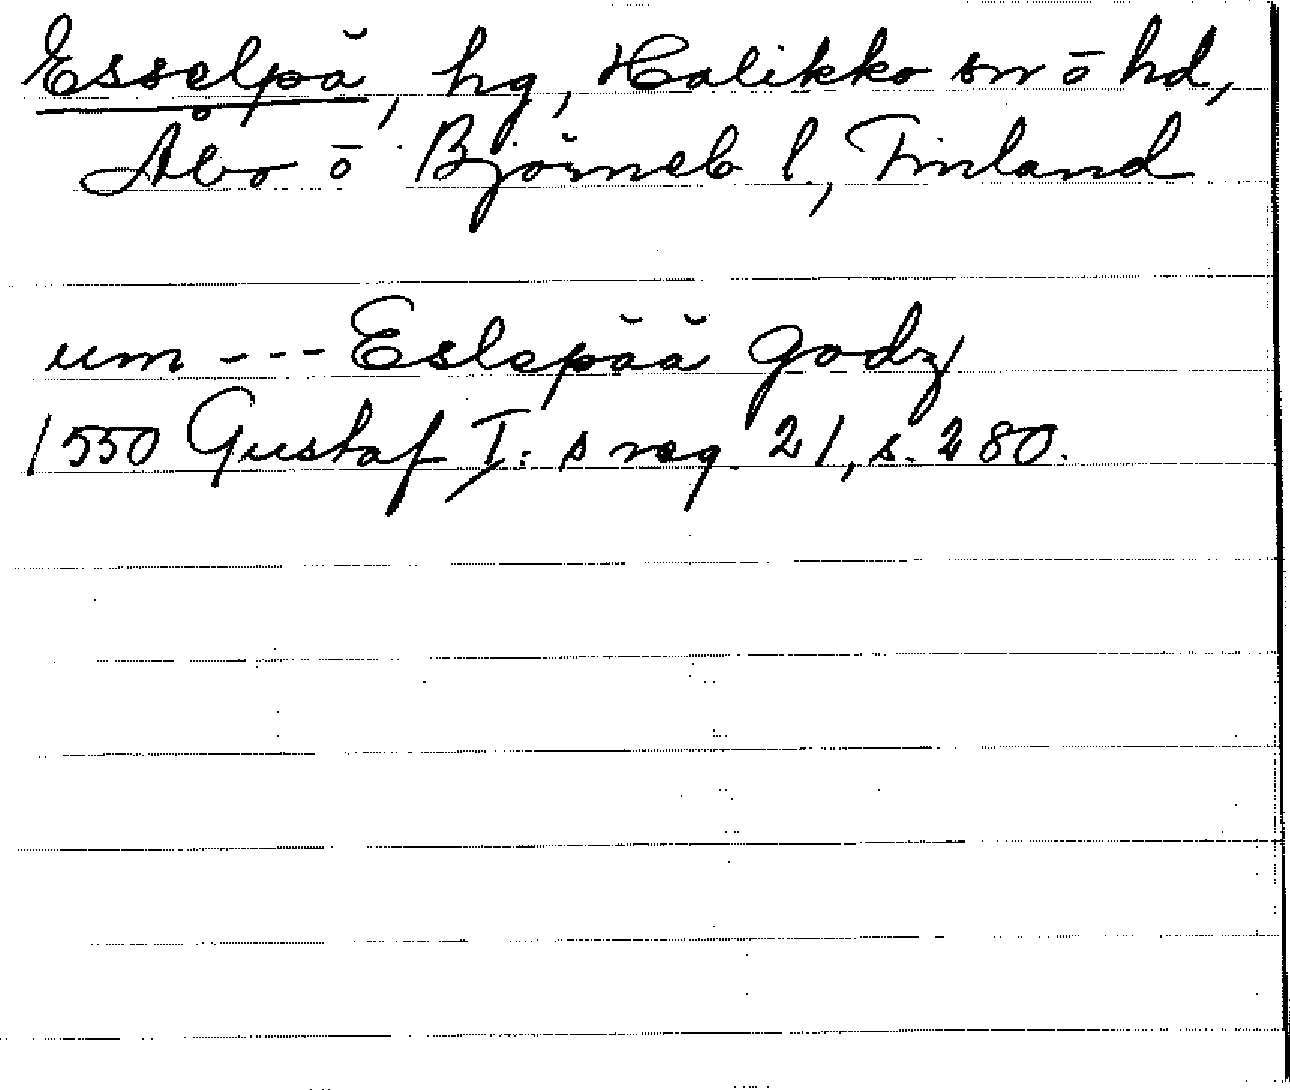 Esselpä, hg, Halikko sn o hd,
Åbo o Björneb l, Finland
um --- Eslepää godz
1550 Gustaf I:s reg. 21, s. 280.